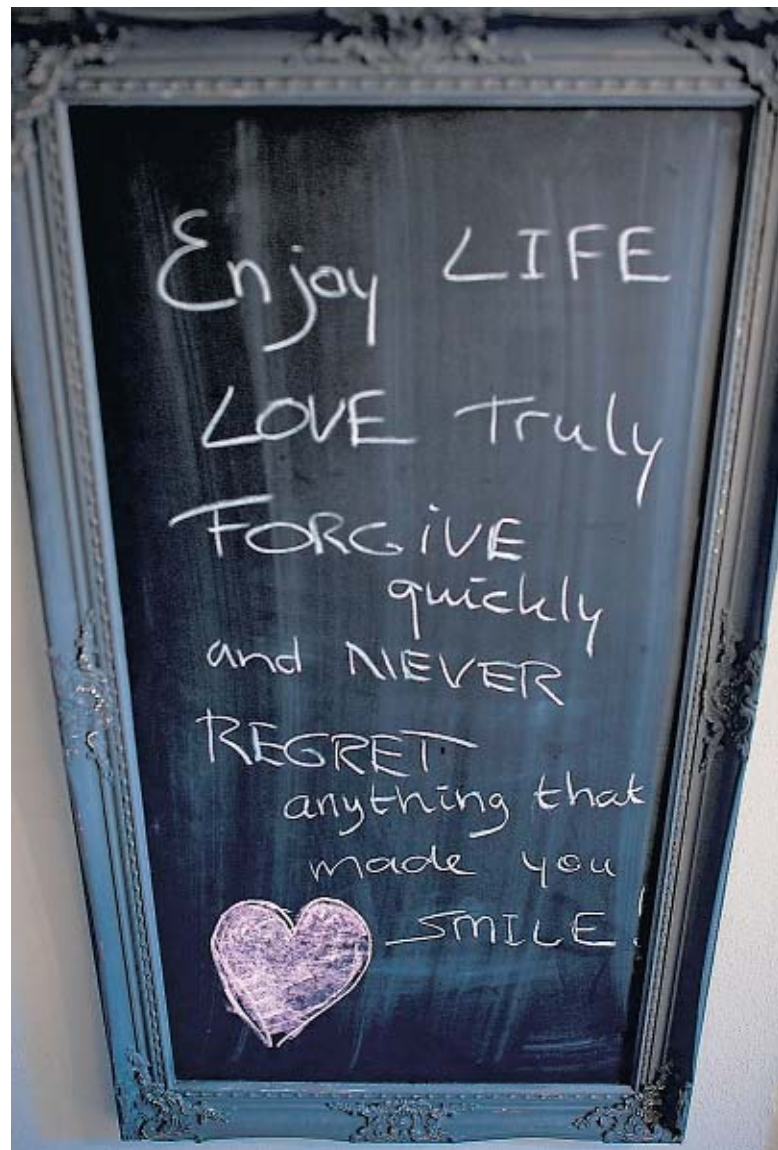 Enjoy LIFE
LOVE Truly
FORGiVE
quickly
and NEVER
REGRET
anything that
made you
SMILE!